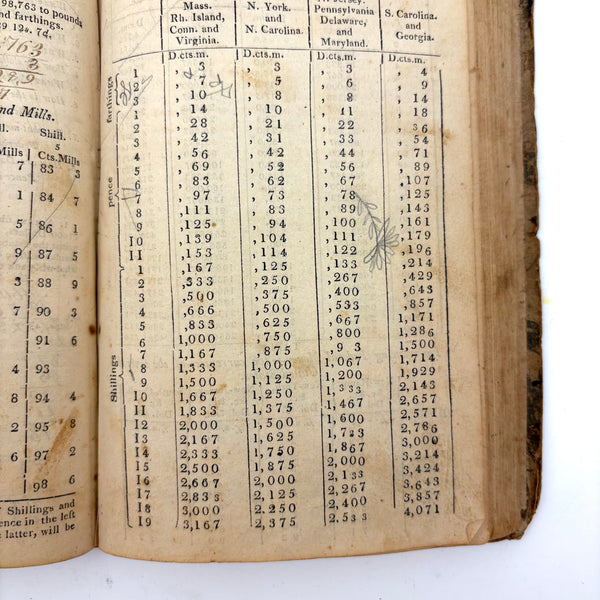 98,763 to pounds
farthings.
9 12s. 7d.
763
3
nd Mills.
Shill.
5
Mills Cts.Mills
7 83 3
1 84 7
5 86 1
9 87 5
3 88 9
7 90 3
91 6
4 93
8 94 4
2 95 8
6 97 2
98 6
Shillings and
ence in the left
latter, will be
Mass. N. York. Pennsylvania S. Carolina.
Rh. Island, and Delaware, and
Conn. and N. Carolina. and Georgia.
Virginia. Maryland.
D.cts.m. D.cts.m. D.cts.m. D.cts.m.
farthings
1 , 3 , 3 , 3 , 4
2 , 7 , 5 , 6 , 9
3 , 10 , 8 , 8 , 14
pence
1 , 14 , 10 , 11 , 18
2 , 28 , 21 , 22 , 36
3 , 42 , 31 , 33 , 54
4 , 56 , 42 , 44 , 71
5 , 69 , 52 , 56 , 89
6 , 83 , 62 , 67 ,107
7 , 97 , 73 , 78 ,125
8 ,111 , 83 , 89 ,143
9 ,125 , 94 ,100 ,161
10 ,139 ,104 ,111 ,179
11 ,153 ,114 ,122 ,196
Shillings
1 ,167 ,125 ,133 ,214
2 ,333 ,250 ,267 ,429
3 ,500 ,375 ,400 ,643
4 ,666 ,500 ,533 ,857
5 ,833 ,625 ,667 1,171
6 1,000 ,750 ,800 1,286
7 1,167 ,875 ,9 3 1,500
8 1,333 1,000 1,067 1,714
9 1,500 1,125 1,200 1,929
10 1,667 1,250 1,333 2,143
11 1,833 1,375 1,467 2,657
12 2,000 1,500 1,600 2,571
13 2,167 1,625 1,733 2,786
14 2,333 1,750 1,867 3,000
15 2,500 1,875 2,000 3,214
16 2,667 2,000 2,133 3,424
17 2,833 2,125 2,267 3,643
18 3,000 2,250 2,400 3,857
19 3,167 2,375 2.533 4,071